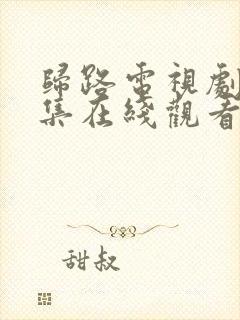 歸路電視劇
集在綫觀看
甜叔